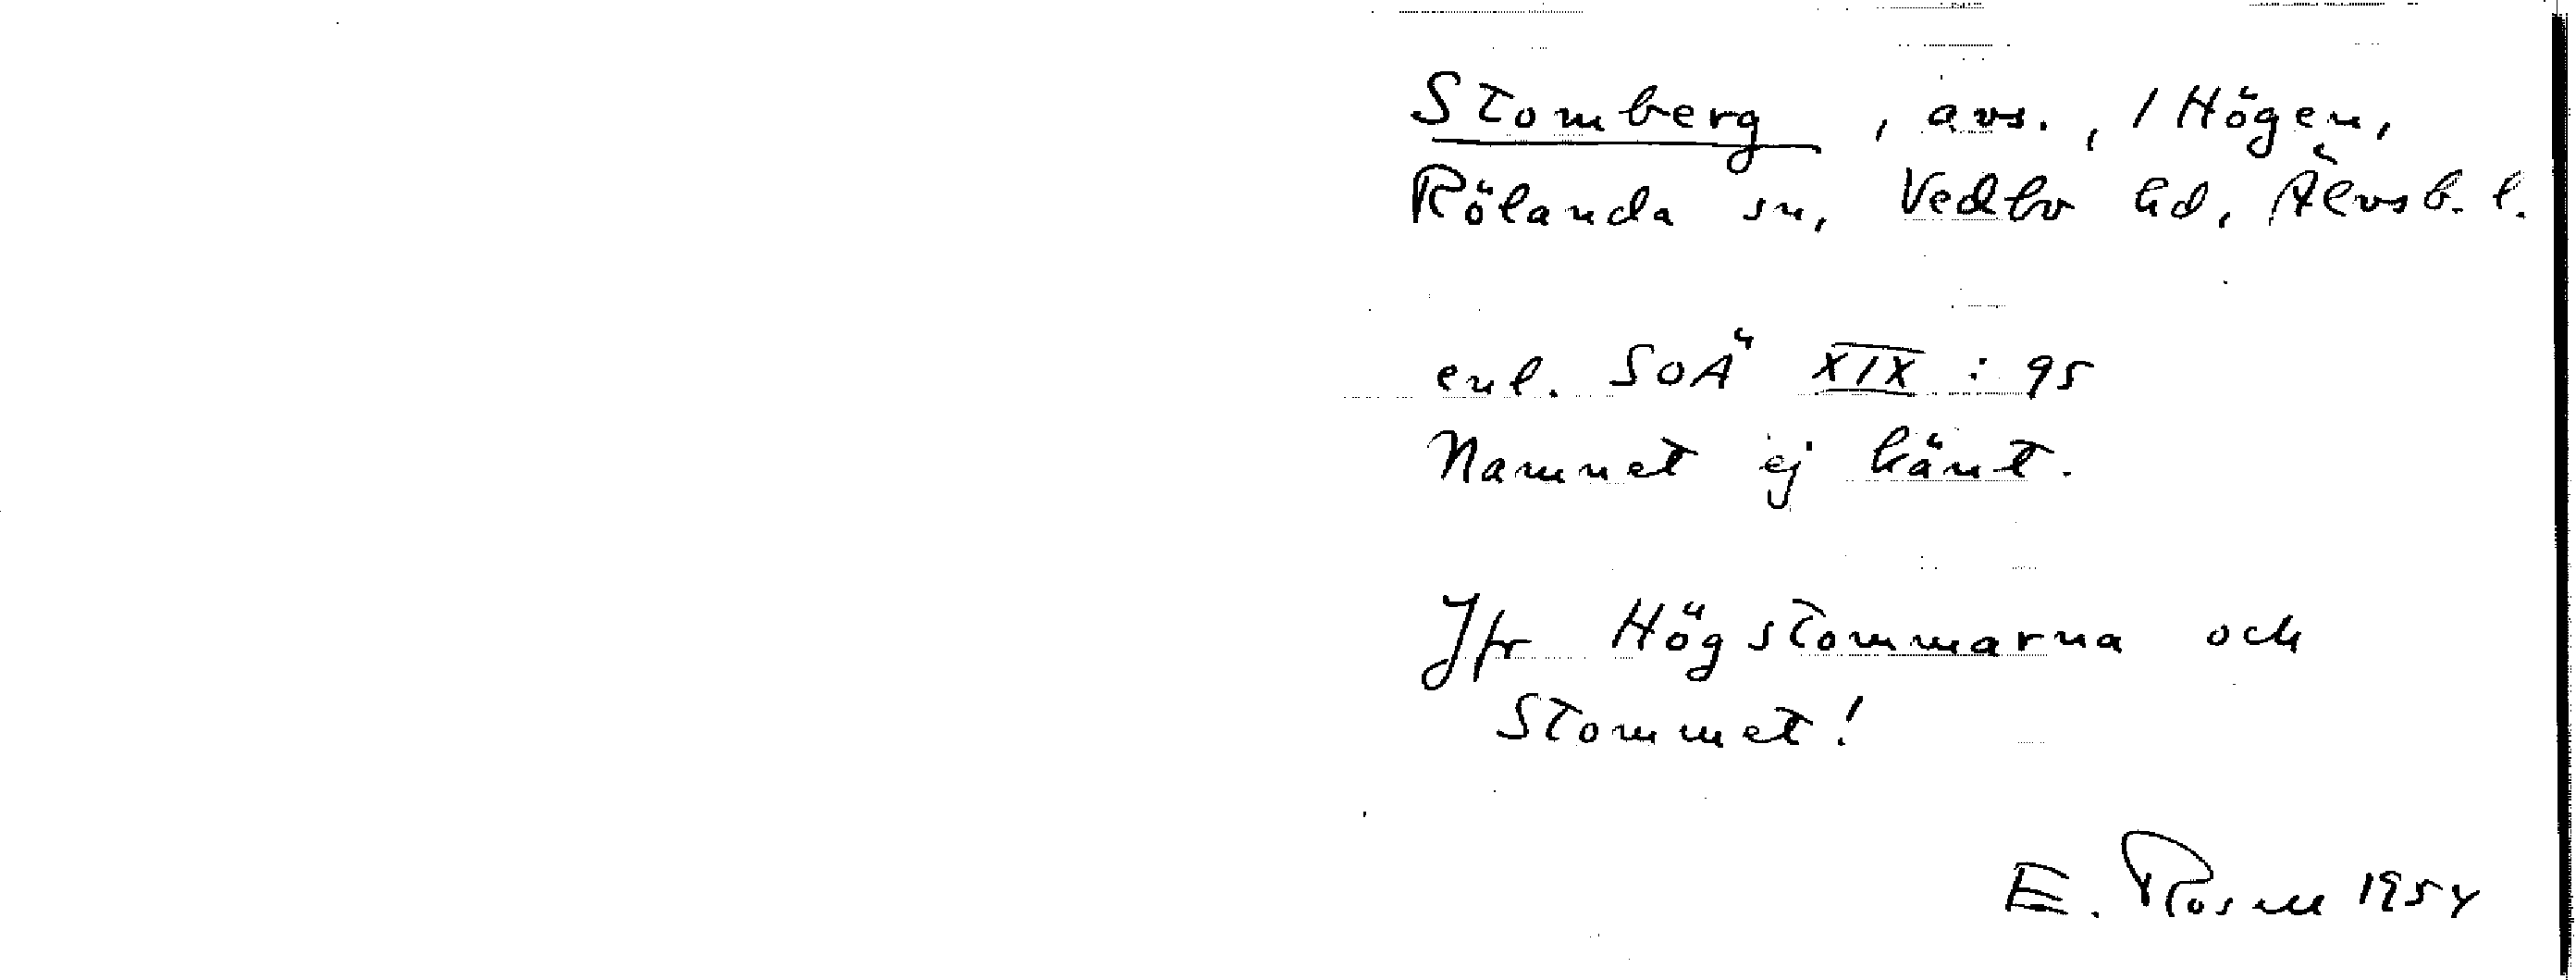 Stomberg, avs., 1 Högen,
Rölanda sn, Vedbo hd, Älvsb. l.
enl. SOÄ XIX : 95
Namnet ej känt.
Jfr Högstommarna och
Stommet!
E. Rosell 1954